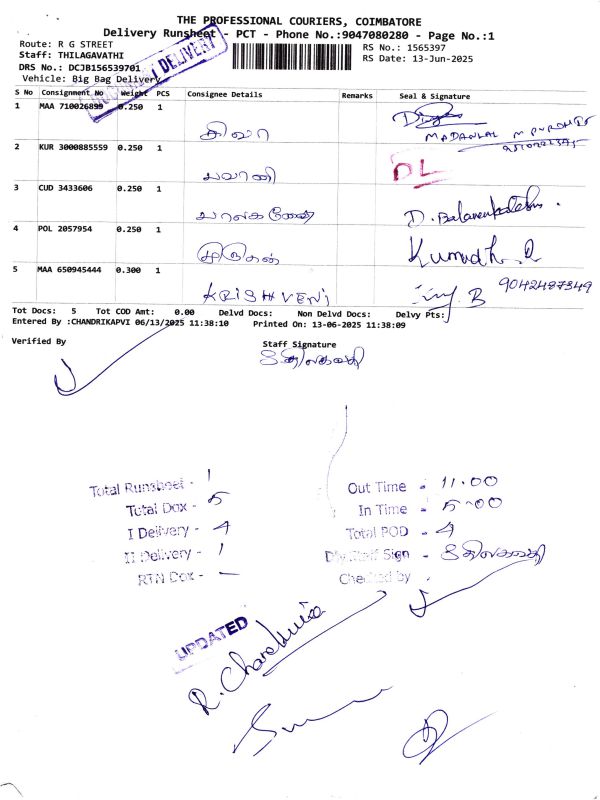 THE PROFESSIONAL COURIERS, COIMBATORE
Delivery Runsheet - PCT - Phone No.:9047080280 - Page No.:1
Route: R G STREET
RS No.: 1565397
Staff: THILAGAVATHI
RS Date: 13-Jun-2025
DRS No.: DCJB156539701
Vehicle: Big Bag Delivery
DELIVERY
S No Consignment No Weight PCS Consignee Details Remarks Seal & Signature
1 MAA 710026899 0.250 1 சிவா
MADANLAL M PUROHIT
2 KUR 3000885559 0.250 1 பவானி DL
3 CUD 3433606 0.250 1
4 POL 2057954 0.250 1 முருகன் Kumudh. R
5 MAA 650945444 0.300 1 KRISHVENI B 9042487349
Tot Docs: 5 Tot COD Amt: 0.00 Delvd Docs: Non Delvd Docs: Delvy Pts:
Entered By :CHANDRIKAPVI 06/13/2025 11:38:10 Printed On: 13-06-2025 11:38:09
Verified By Staff Signature
Total Runsheet - 1
Total Dox - 5
I Delivery - 4
II Delivery - 1
RTN Dox - —
Out Time - 11.00
In Time - 5.00
Total POD - 4
Dly.Staff Sign -
Checked by
UPDATED